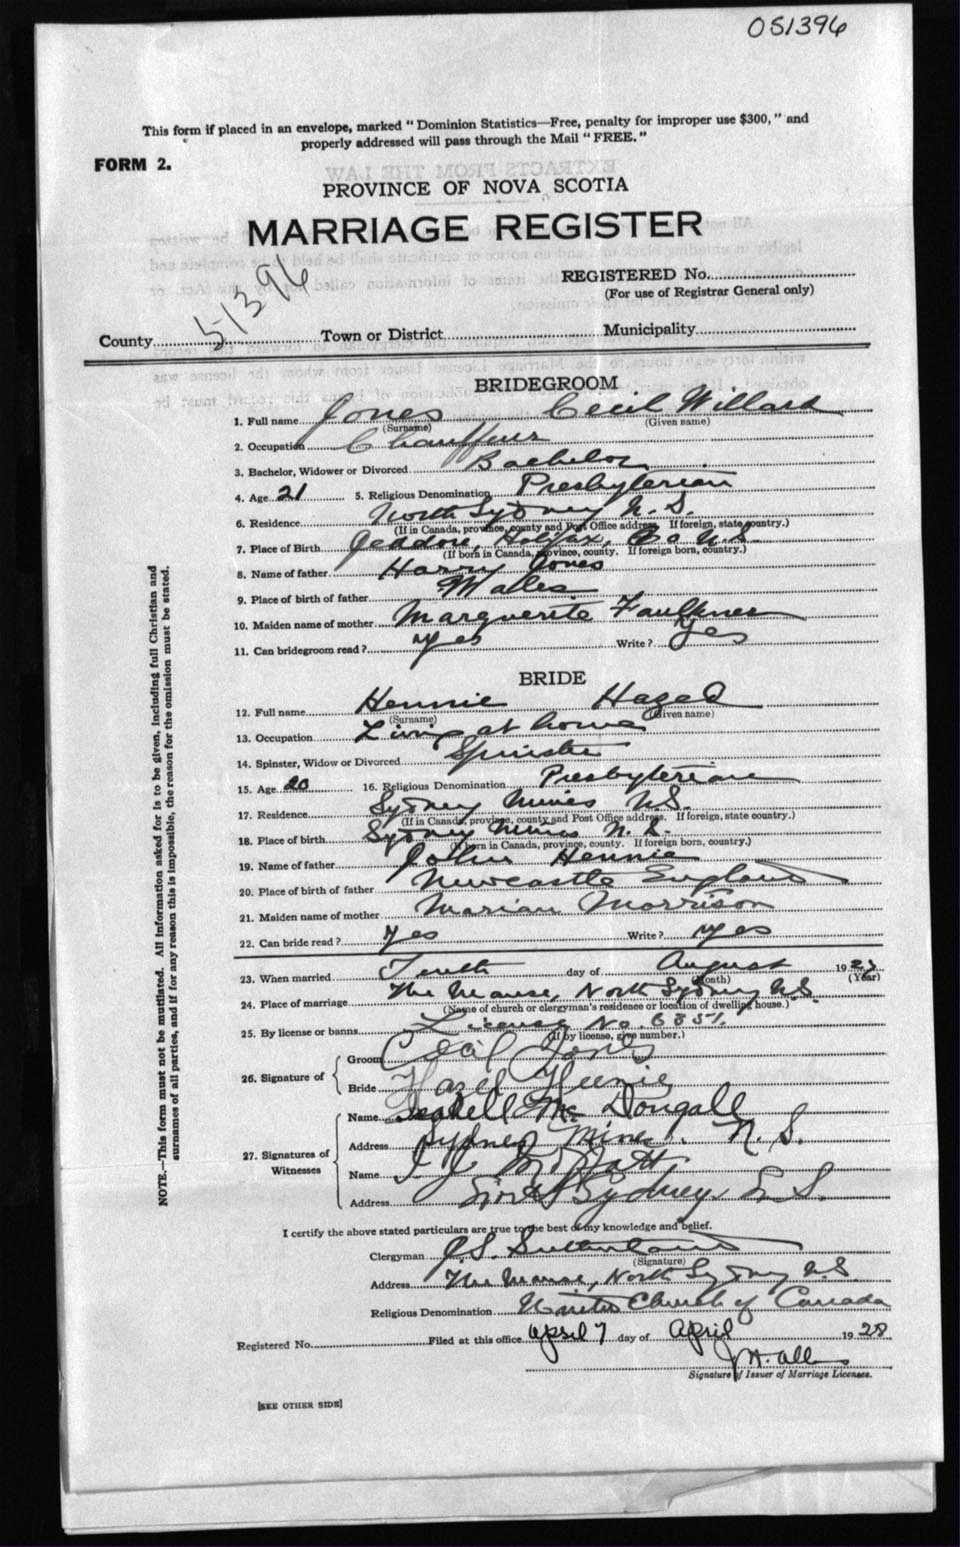 051396
This form if placed in an envelope, marked "Dominion Statistics—Free, penalty for improper use $300," and
properly addressed will pass through the Mail "FREE."
FORM 2.
PROVINCE OF NOVA SCOTIA
MARRIAGE REGISTER
REGISTERED No.
(For use of Registrar General only)
51396
County Town or District Municipality
BRIDEGROOM
1. Full name Jones Cecil Willard
(Surname) (Given name)
2. Occupation Chauffeur
3. Bachelor, Widower or Divorced Bachelor
4. Age 21 5. Religious Denomination Presbyterian
6. Residence North Sydney N. S.
(If in Canada, province, county and Post Office address. If foreign, state country.)
7. Place of Birth Jeddore, Halifax, Co N.S.
(If born in Canada, province, county. If foreign born, country.)
8. Name of father Harry Jones
9. Place of birth of father Wales
10. Maiden name of mother Marguerite Faulkner
11. Can bridegroom read? yes Write? yes
BRIDE
12. Full name Hennie Hazel
(Surname) (Given name)
13. Occupation Living at home
14. Spinster, Widow or Divorced Spinster
15. Age 20 16. Religious Denomination Presbyterian
17. Residence Sydney Mines N.S.
(If in Canada, province, county and Post Office address. If foreign, state country.)
18. Place of birth Sydney Mines N. S.
(If born in Canada, province, county. If foreign born, country.)
19. Name of father Hennie
20. Place of birth of father Newcastle England
21. Maiden name of mother Marian Morrison
22. Can bride read? yes Write? yes
23. When married Tenth day of August 19
(Month) (Year)
24. Place of marriage The Manse, North Sydney N.S.
(Name of church or clergyman's residence or location of dwelling house.)
25. By license or banns License No. 6351.
(If by license, give number.)
26. Signature of
Groom Cecil Jones
Bride Hazel Hennie
27. Signatures of Witnesses
Name Isabell Mc Dougall
Address Sydney Mines. N. S.
Name
Address North Sydney N. S.
I certify the above stated particulars are true to the best of my knowledge and belief.
Clergyman J.S. Sutherland
(Signature)
Address The Manse, North Sydney N.S.
Religious Denomination United Church of Canada
Registered No. Filed at this office April 7 day of April 1928
Signature of Issuer of Marriage Licenses.
[SEE OTHER SIDE]
NOTE.—This form must not be mutilated. All information asked for is to be given, including full Christian and
surnames of all parties, and if for any reason this is impossible, the reason for the omission must be stated.